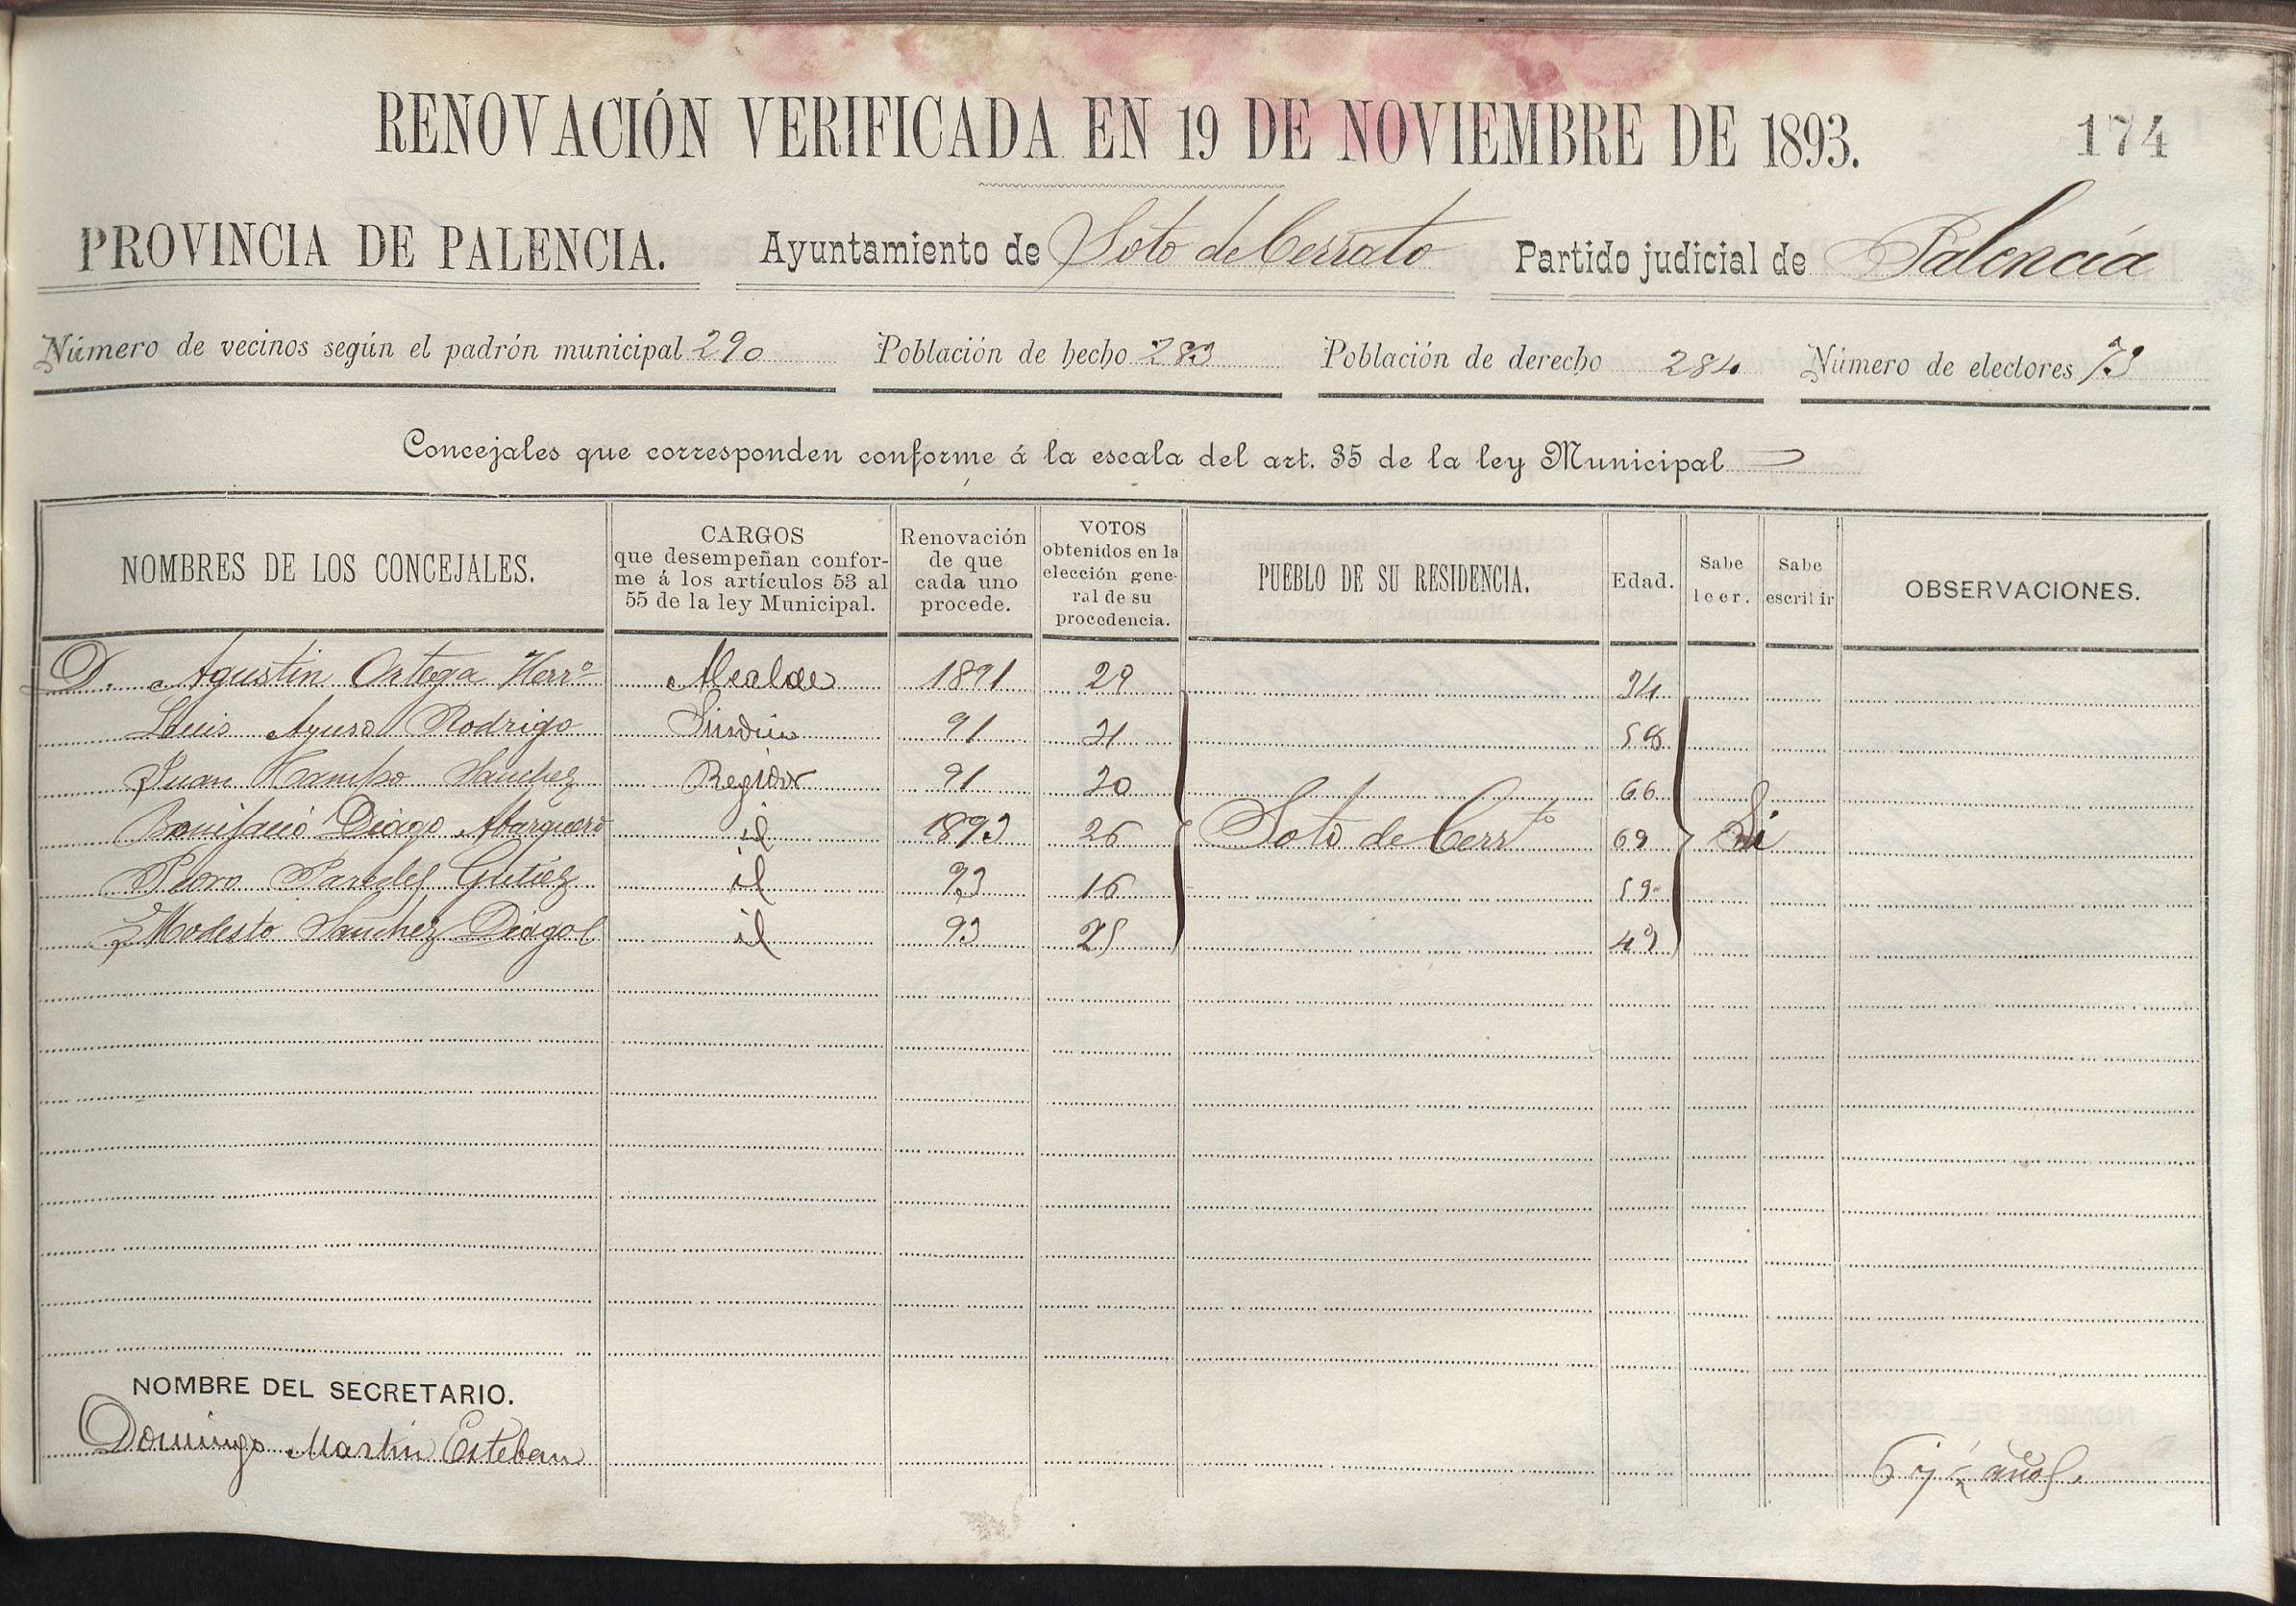 RENOVACIÓN VERIFICADA EN 19 DE NOVIEMBRE DE 1893. 174
PROVINCIA DE PALENCIA. Ayuntamiento de Soto de Cerrato Partido judicial de Palencia
Número de vecinos según el padrón municipal 290 Población de hecho 283 Población de derecho 284 Número de electores 73
Concejales que corresponden conforme á la escala del art. 35 de la ley Municipal
NOMBRES DE LOS CONCEJALES.
CARGOS
que desempeñan confor-
me á los artículos 53 al
55 de la ley Municipal.
Renovación
de que
cada uno
procede.
VOTOS
obtenidos en la
elección gene-
ral de su
procedencia.
PUEBLO DE SU RESIDENCIA.
Edad.
Sabe
leer.
Sabe
escribir
OBSERVACIONES.
D. Agustin Ortega Herrº Alcalde 1891 29 34
Luis Ayuso Rodrigo Sindico 91 21 58
Juan Sanchez Regidor 91 20 66
Bonifacio Diago Abarquero id 1893 26 Soto de Cerrto 69 Si
Pedro Paredes Gutiez id 93 16 59
Modesto Sanchez Diago id 93 25 49
NOMBRE DEL SECRETARIO.
Domingo Martin Esteban 6 y ½ años.